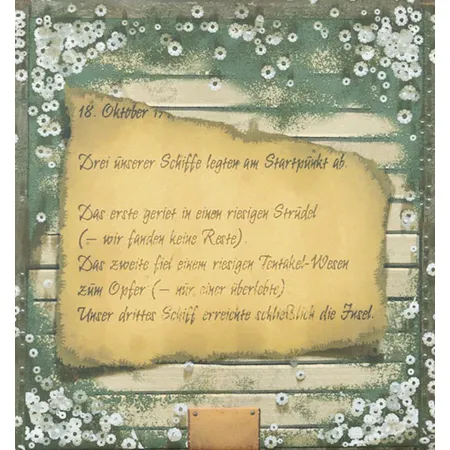 18. Oktober 17
Drei unserer Schiffe legten am Startpunkt ab.
Das erste geriet in einen riesigen Strudel
(– wir fanden keine Reste).
Das zweite fiel einem riesigen Tentakel-Wesen
zum Opfer (– nur einer überlebte).
Unser drittes Schiff erreichte schließlich die Insel.